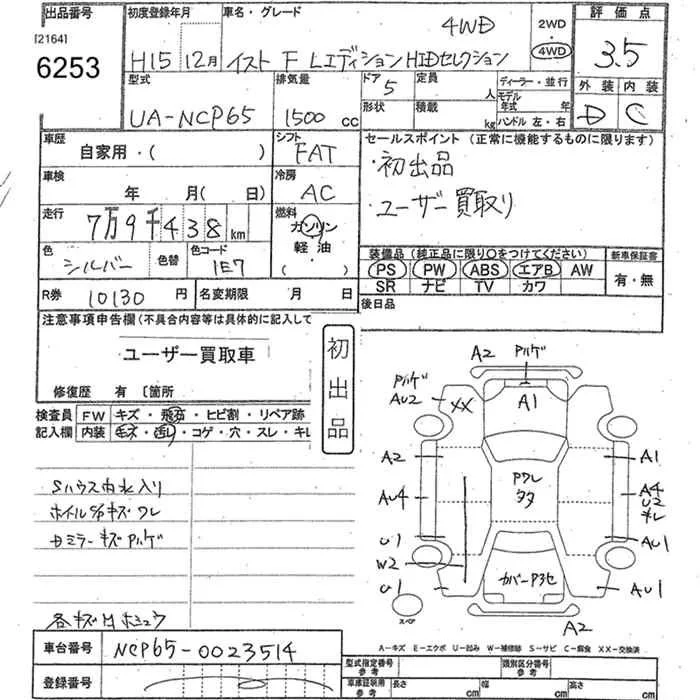 出品番号
[2164]
6253
初度登録年月
H15 12月
車名・グレード
4WD
イスト F Lエディション HIDセレクション
2WD
・
4WD
評価点
3.5
外装 内装
D C
型式
UA-NCP65
排気量
1500 cc
ドア 5
形状
定員 人
積載 kg
ディーラー・並行
モデル年式 年
ハンドル 左・右
車歴
自家用・( )
シフト
FAT
セールスポイント (正常に機能するものに限ります)
・初出品
・ユーザー買取り
車検
年 月( 日)
冷房
AC
走行
7万9千438 km
燃料
ガソリン
軽油
( )
色
シルバー
色替
色コード
1E7
装備品 (純正品に限り○をつけてください)
新車保証書
PS PW ABS エアB AW
SR ナビ TV カワ
有・無
R券 10130 円
名変期限 月 日
後日品
注意事項申告欄 (不具合内容等は具体的に記入して
ユーザー買取車
修復歴 有 〔箇所
初出品
検査員
記入欄
FW キズ・飛石・ヒビ割・リペア跡
内装 キズ・汚レ・コゲ・穴・スレ・キレ
Sハウス内水入り
ホイルS/Pキズ ワレ
ドミラーキズ Pハゲ
各キズ凹ホシュウ
A2 Pハゲ
Pハゲ
AU2
XX
A1
A2
A1
Pワレ
タタ
AU4
A4
U2
キレ
U1
AU1
W2
カバーP3セ
U1
AU1
スペア
A2
車台番号
NCP65-0023514
登録番号
A-キズ E-エクボ U-凹み W-補修跡 S-サビ C-腐食 XX-交換済
型式指定番号
参考
類別区分番号
参考
車庫証明用
参考
長さ cm
幅 cm
高さ cm